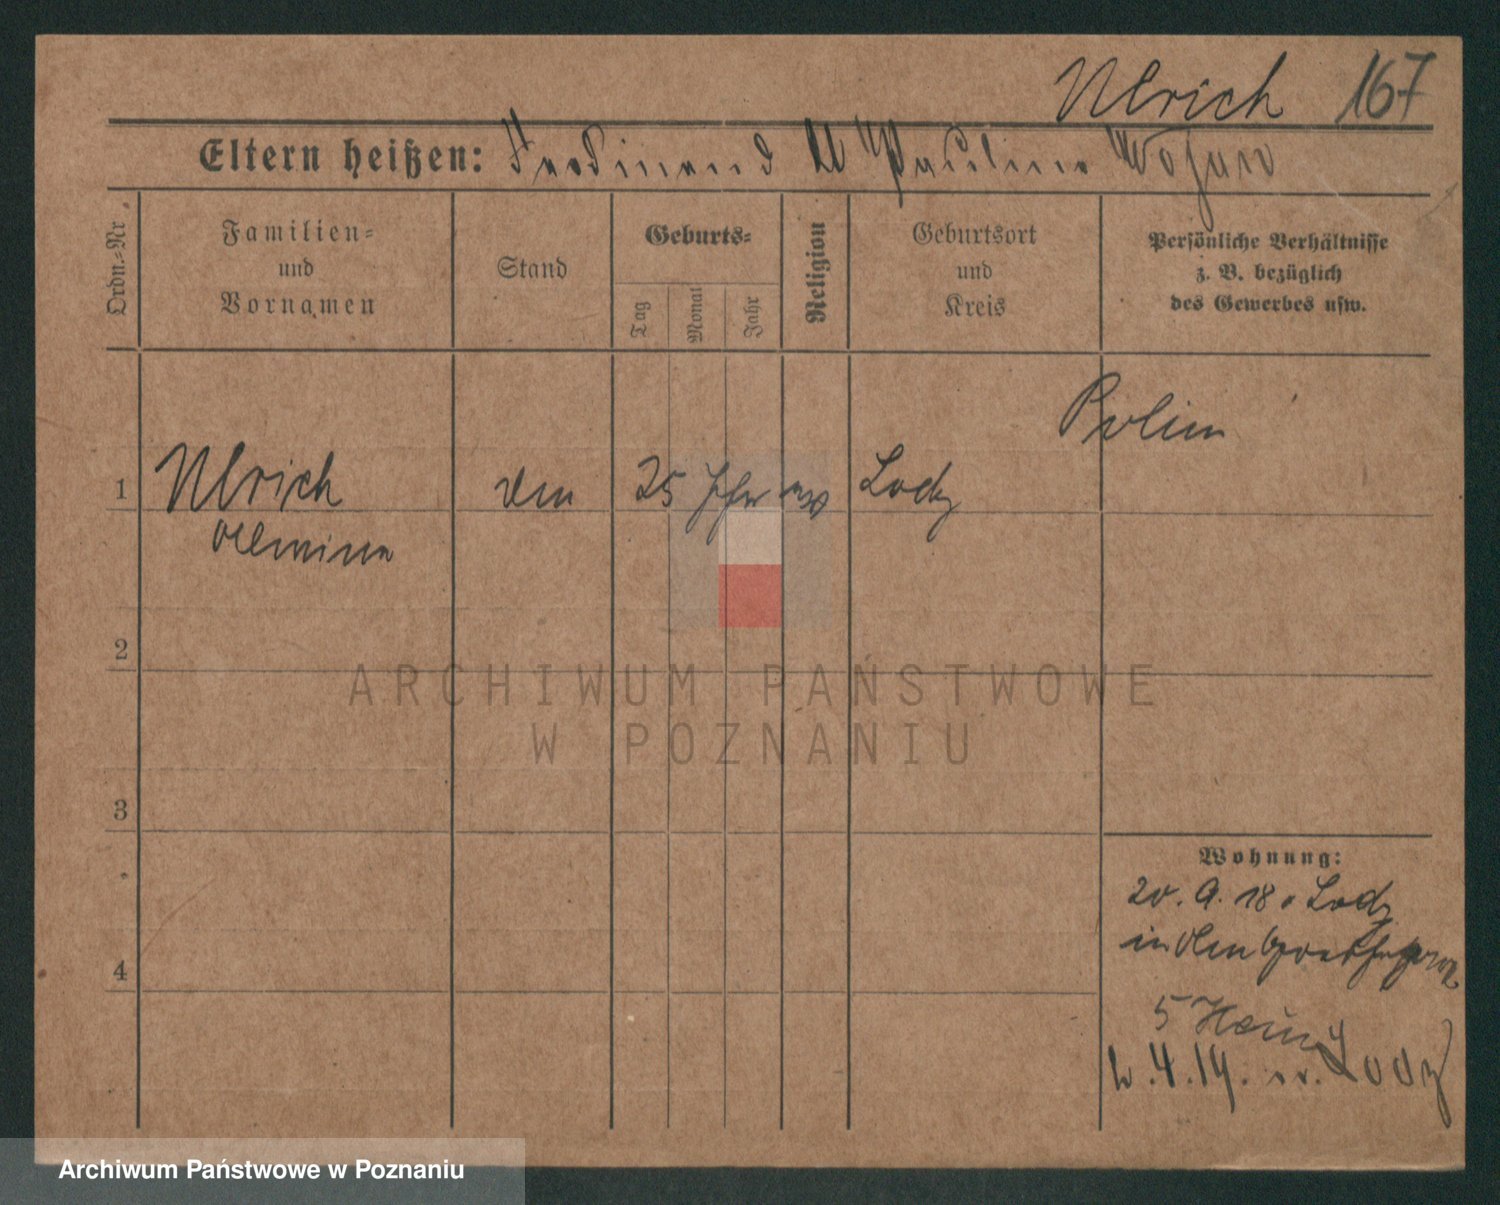 Ulrich 167
Eltern heißen: Ferdinand u Pauline
Ordn.-Nr.
Familien-
und
Vornamen
Stand
Geburts-
Tag
Monat
Jahr
Religion
Geburtsort
und
Kreis
Persönliche Verhältnisse
z. B. bezüglich
des Gewerbes usw.
Polin
1 Ulrich 25 Lodz
2
3
4
Wohnung:
20. 9. 18 v Lodz
in
5
4. 14. Lodz
ARCHIWUM PAŃSTWOWE
W POZNANIU
Archiwum Państwowe w Poznaniu